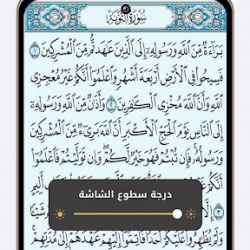 سُورَةُ التَّوْبَةِ
بَرَآءَةٌ مِّنَ ٱللَّهِ وَرَسُولِهِۦٓ إِلَى ٱلَّذِينَ عَٰهَدتُّم مِّنَ ٱلْمُشْرِكِينَ ١
فَسِيحُوا۟ فِى ٱلْأَرْضِ أَرْبَعَةَ أَشْهُرٍ وَٱعْلَمُوٓا۟ أَنَّكُمْ غَيْرُ مُعْجِزِى
ٱللَّهِ وَأَنَّ ٱللَّهَ مُخْزِى ٱلْكَٰفِرِينَ ٢ وَأَذَٰنٌ مِّنَ ٱللَّهِ وَرَسُولِهِۦٓ
إِلَى ٱلنَّاسِ يَوْمَ ٱلْحَجِّ ٱلْأَكْبَرِ أَنَّ ٱللَّهَ بَرِىٓءٌ مِّنَ ٱلْمُشْرِكِينَ
وَرَسُولُهُۥ فَإِن تُبْتُمْ فَهُوَ خَيْرٌ لَّكُمْ وَإِن تَوَلَّيْتُمْ فَٱعْلَمُوٓا۟
درجة سطوع الشاشة